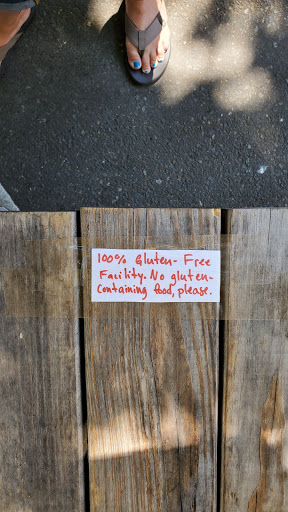 100% Gluten-Free
Facility. No gluten-
Containing food, please.